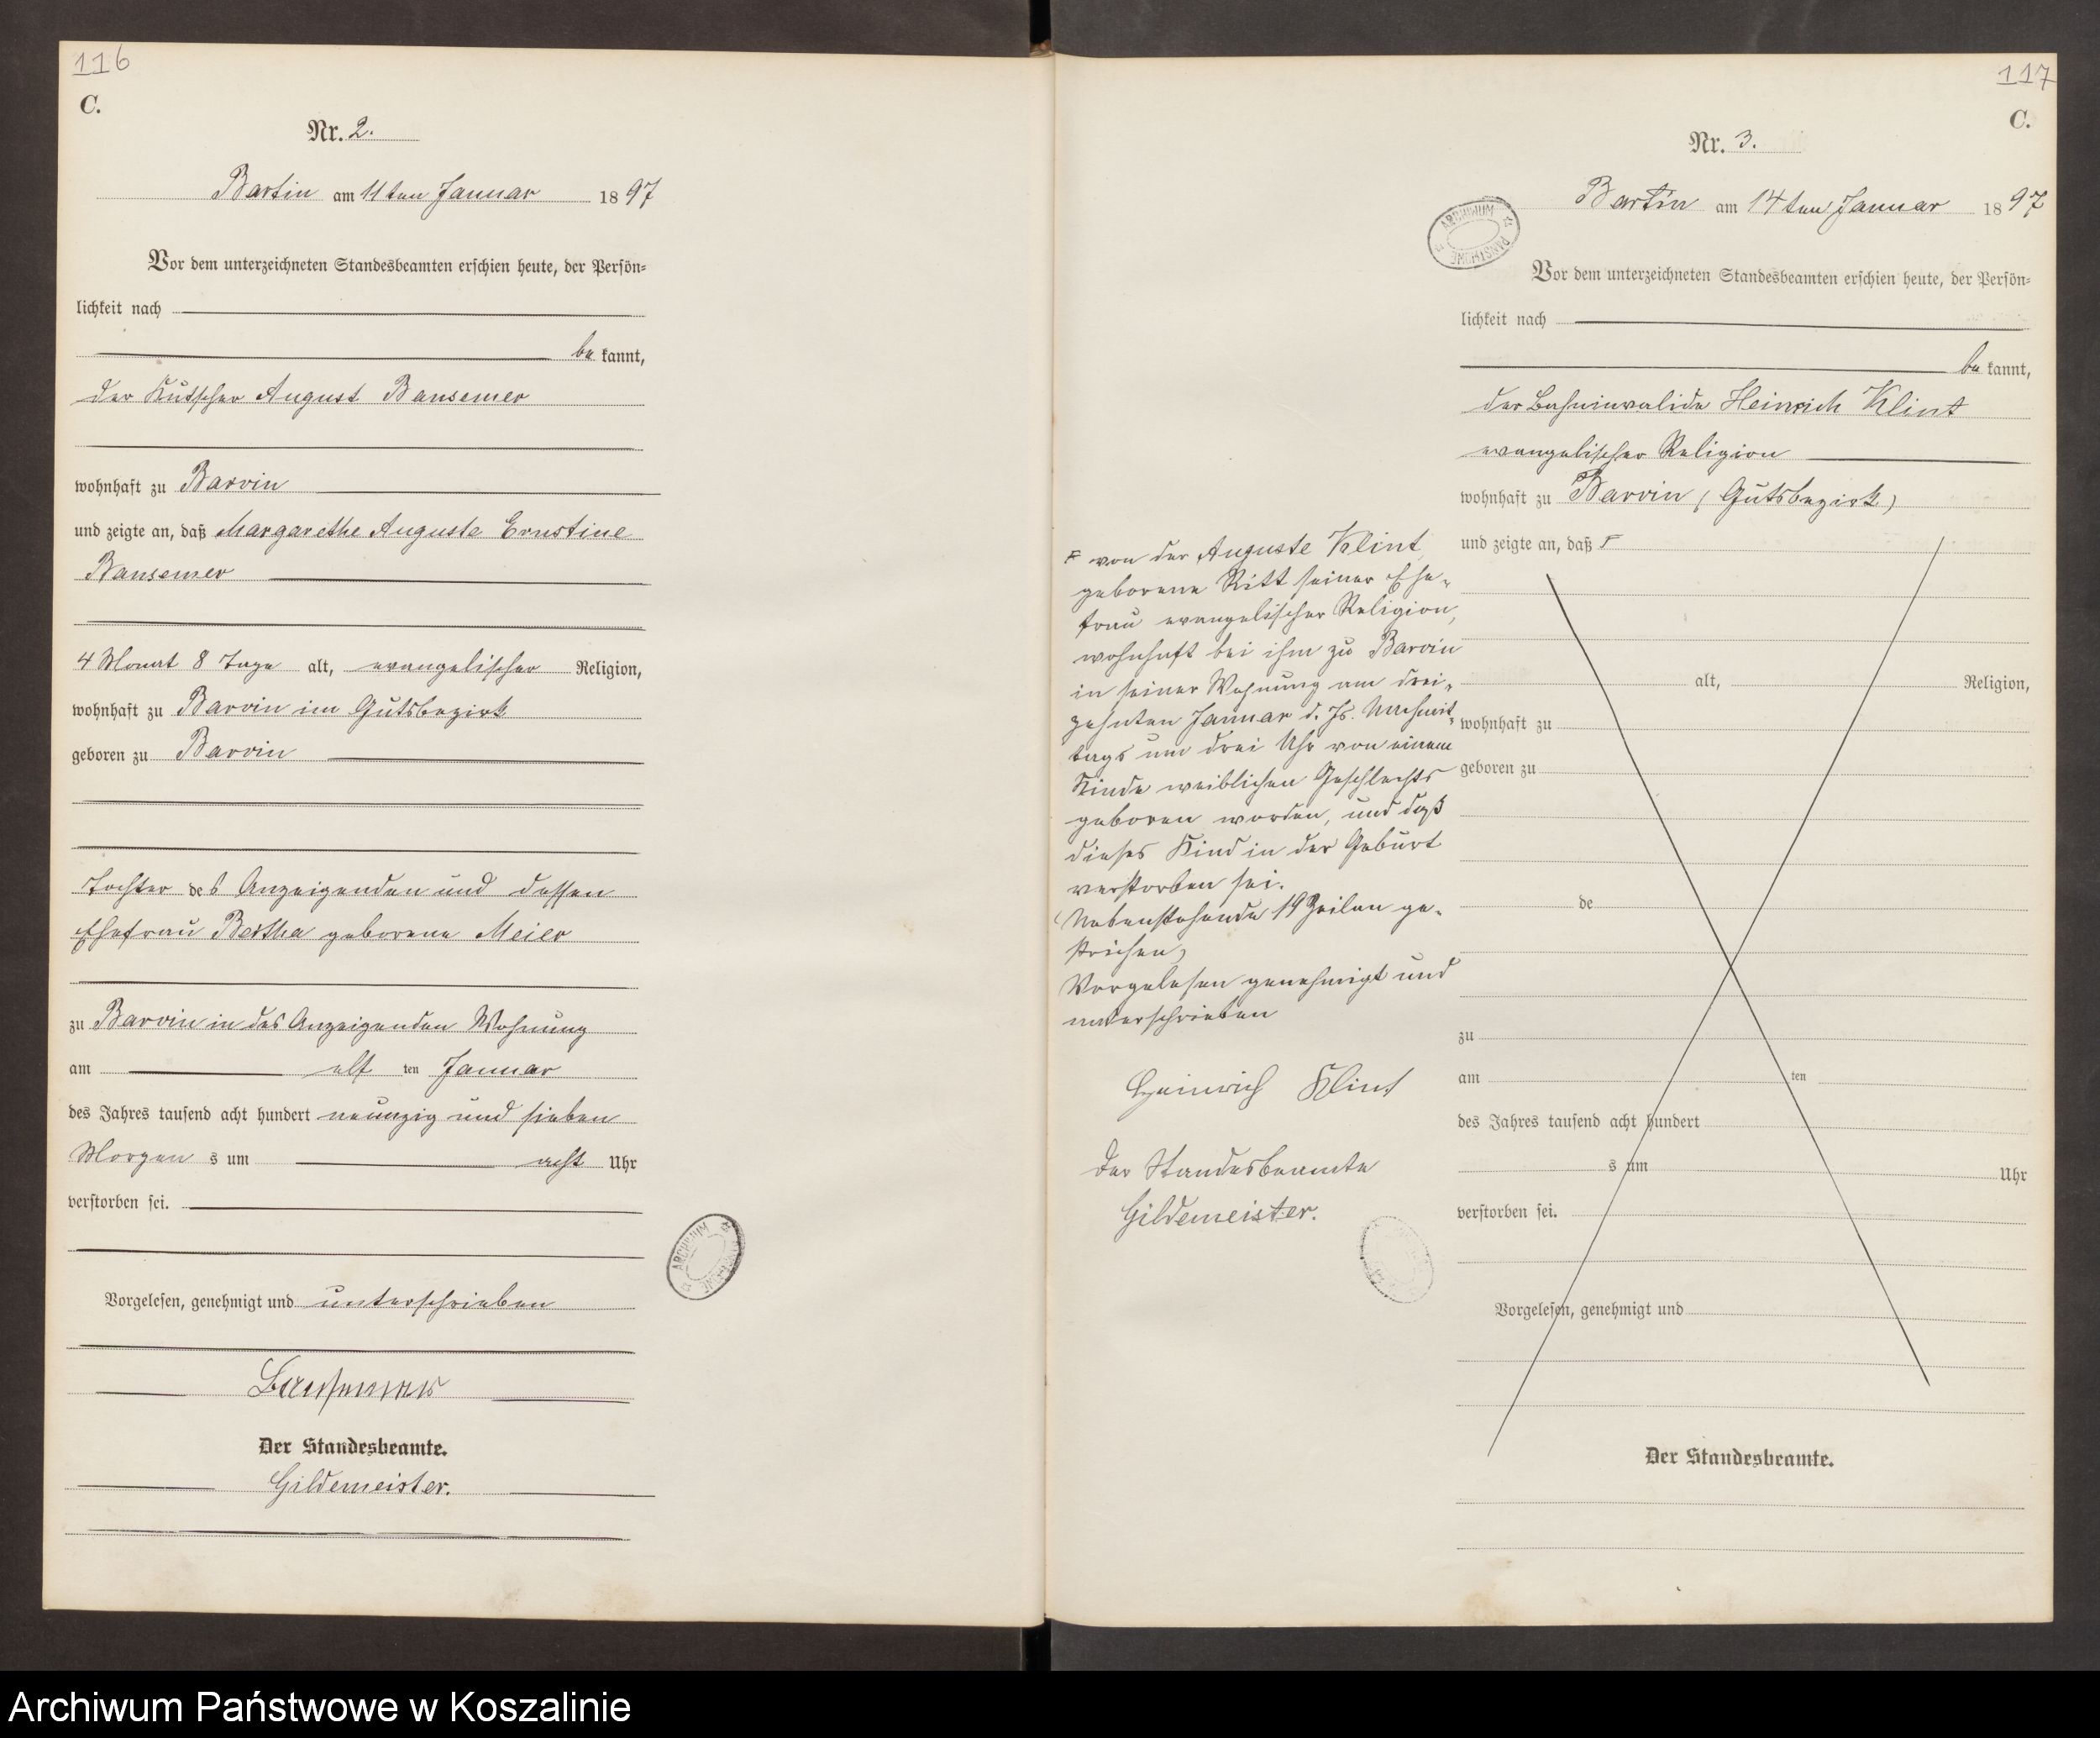 116
C.
Nr. 2.
Bartin am 11ten Januar 1897
Vor dem unterzeichneten Standesbeamten erschien heute, der Persön-
lichkeit nach
bekannt,
der Kutscher August Bansemer
wohnhaft zu Barvin
und zeigte an, daß Margarethe Auguste Ernstine
Bansemer
4 Monat 8 Tage alt, evangelischer Religion,
wohnhaft zu Barvin im Gutsbezirk
geboren zu Barvin
Tochter des Anzeigenden und dessen
Ehefrau Bertha geborene Meier
zu Barvin in des Anzeigenden Wohnung
am elf ten Januar
des Jahres tausend acht hundert neunzig und sieben
Morgen s um acht Uhr
verstorben sei.
Vorgelesen, genehmigt und unterschrieben
Bansemer
Der Standesbeamte.
Gildemeister.
ARCHIWUM
117
C.
Nr. 3.
Bartin am 14ten Januar 1897
ARCHIWUM PAŃSTWOWE
Vor dem unterzeichneten Standesbeamten erschien heute, der Persön-
lichkeit nach
bekannt,
der Bahninvalide Heinrich Klint
evangelischer Religion
wohnhaft zu Barvin (Gutsbezirk)
und zeigte an, daß F
F von der Auguste Klint,
geborene Ritt seiner Ehe-
frau evangelischer Religion,
wohnhaft bei ihm zu Barvin
in seiner Wohnung am drei-
zehnten Januar d. Js. Nachmit-
tags um drei Uhr von einem
Kinde weiblichen Geschlechts
geboren worden, und daß
dieses Kind in der Geburt
verstorben sei.
(Nebenstehende 19 Zeilen ge-
strichen)
Vorgelesen genehmigt und
unterschrieben
Heinrich Klint
Der Standesbeamte
Gildemeister.
alt, Religion,
wohnhaft zu
geboren zu
de
zu
am ten
des Jahres tausend acht hundert
s um Uhr
verstorben sei.
Vorgelesen, genehmigt und
Der Standesbeamte.
Archiwum Państwowe w Koszalinie